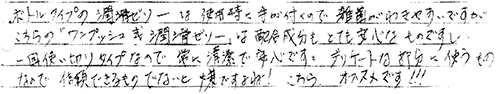 ボトルタイプの潤滑ゼリーは使用時に手が付くので雑菌がわきやすいですが
こちらの「ワンプッシュ式潤滑ゼリー」は配合成分もとても安心なものですし
一回使い切りタイプなので常に清潔で安心です。デリケートな部分に使うもの
なので信頼できるものでないと嫌ですよね! こちら、オススメです!!!